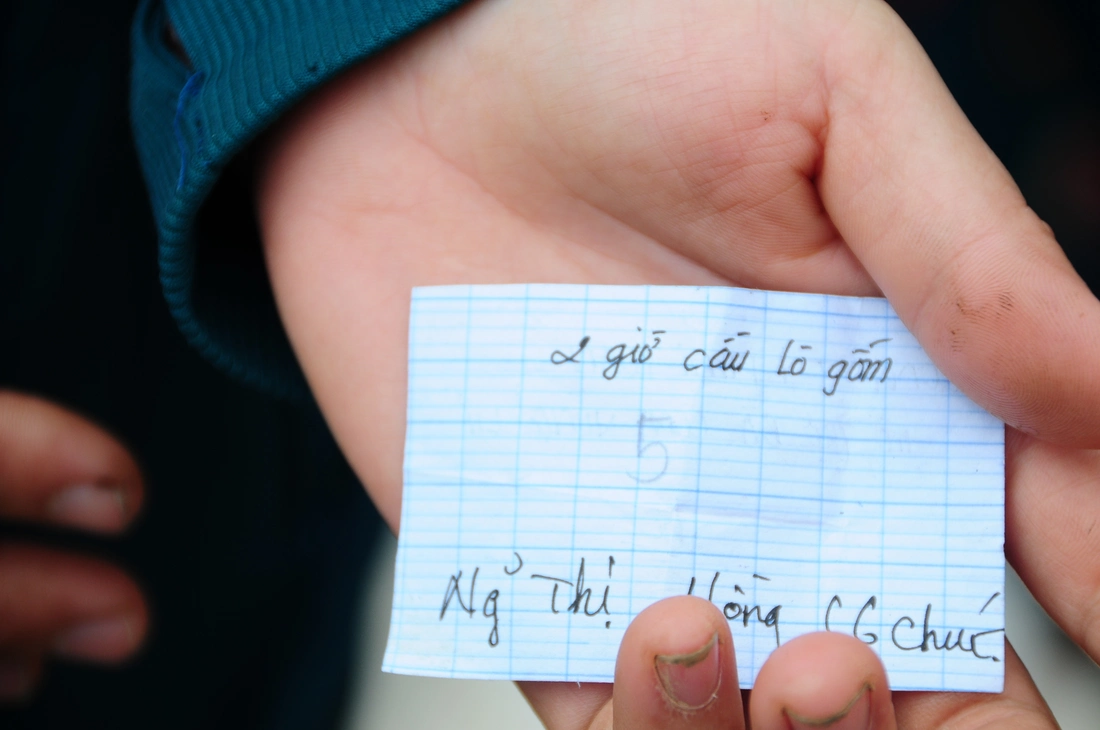 2 giờ cầu Lò gốm
5
Ng̉ Thị Hồng CG chức